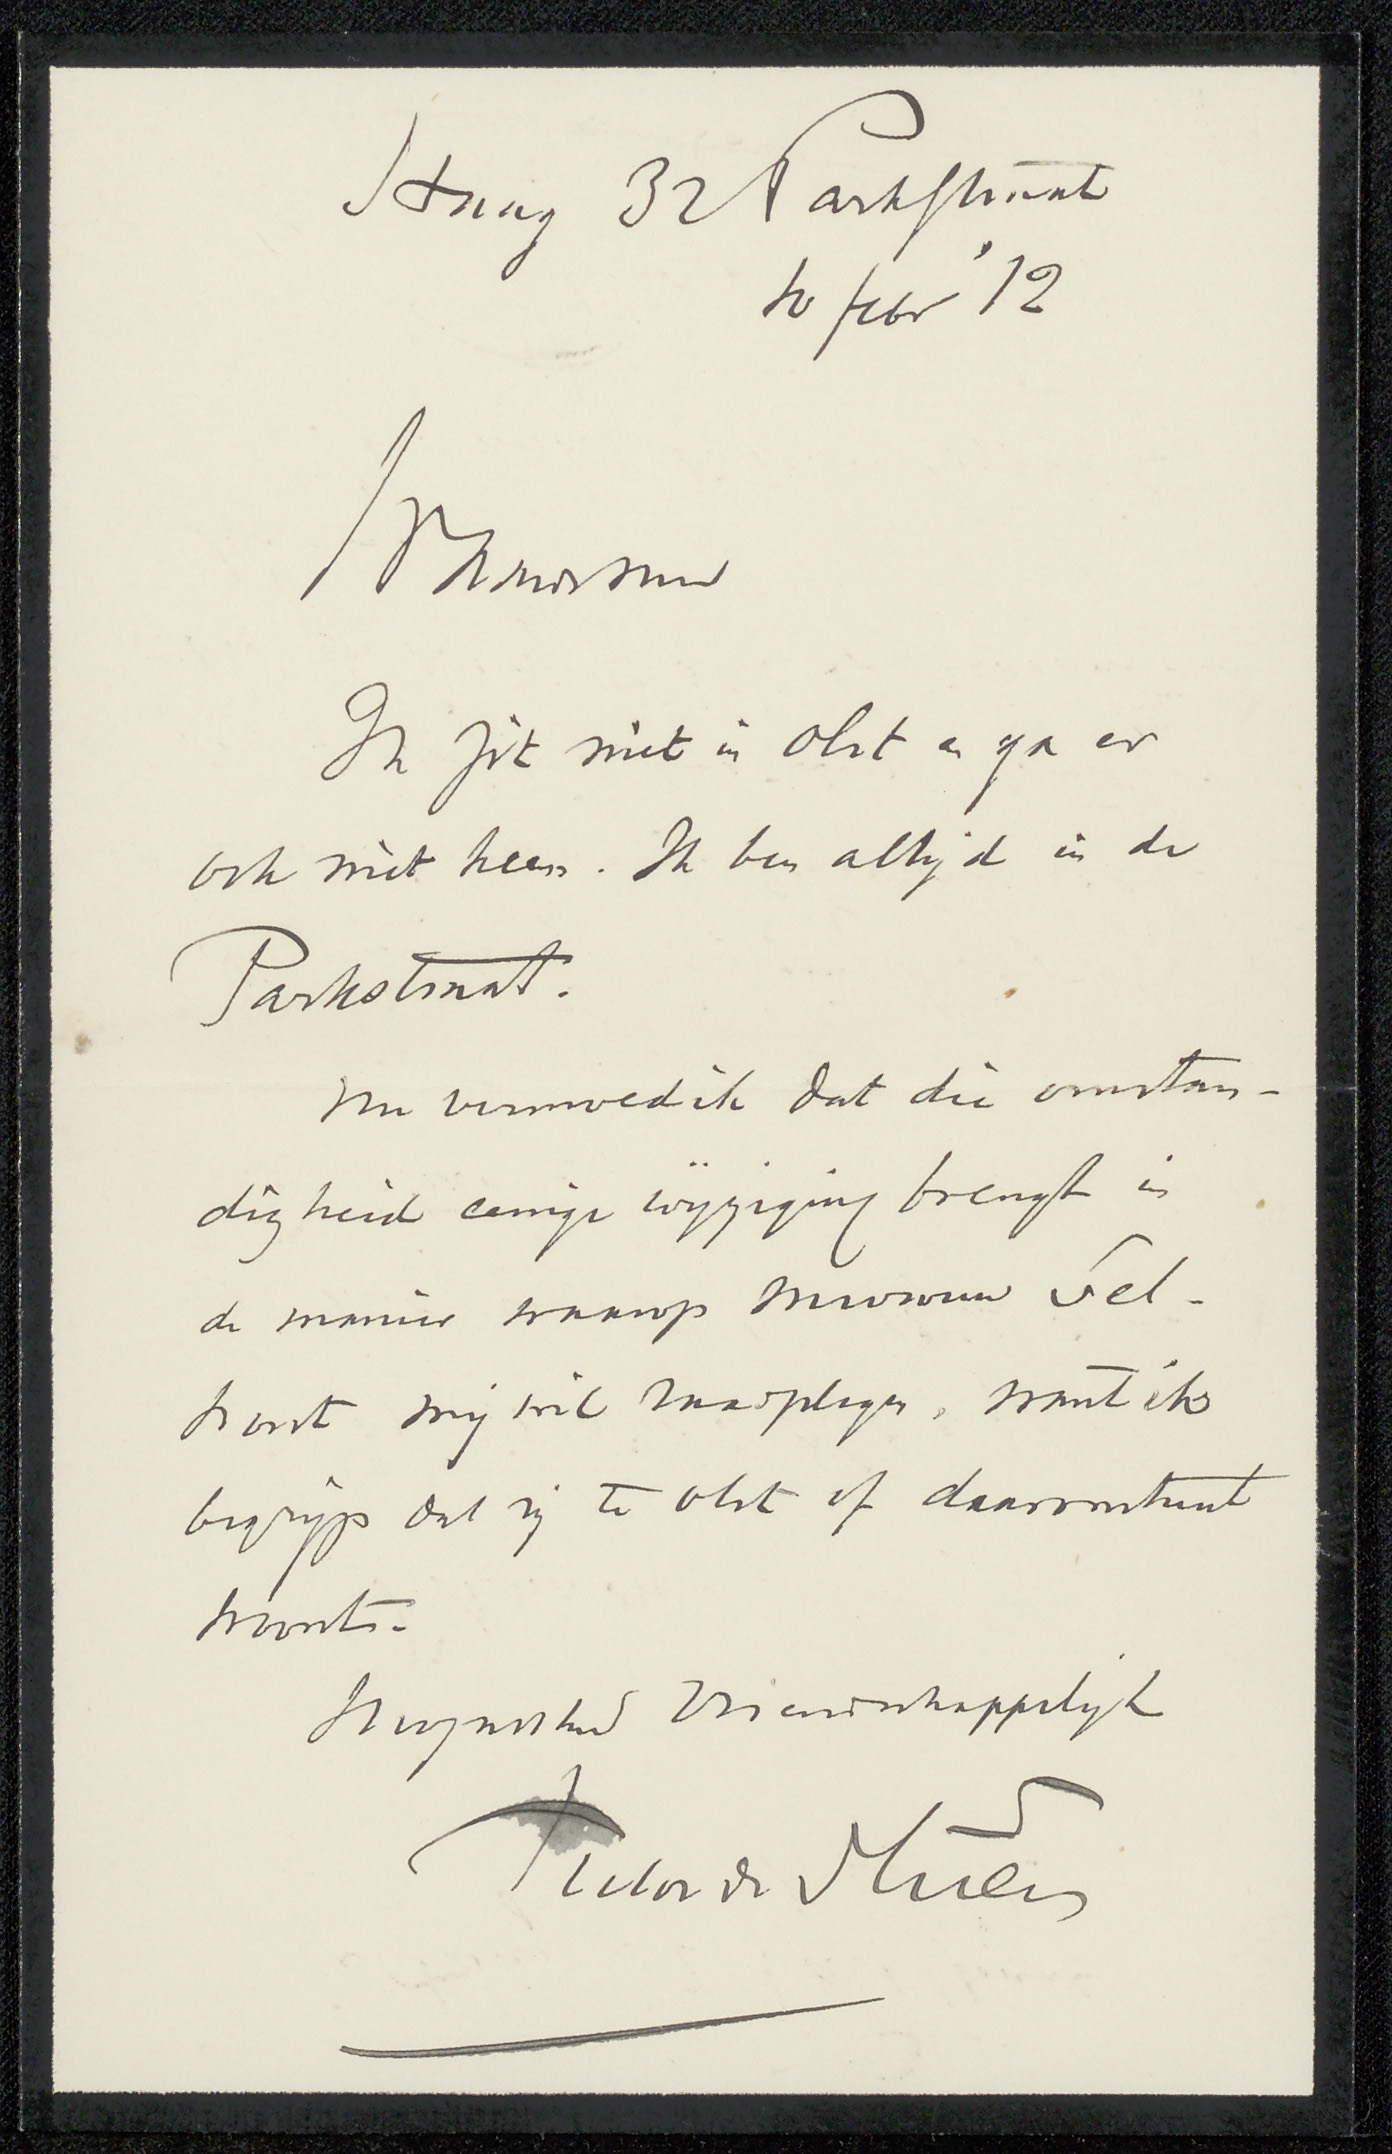 Haag 32 Parkstraat
10 febr '12
Ik zit niet in Olst en ga er
ook niet heen. Ik ben altijd in de
Parkstraat.
Nu vermoed ik dat die omstan-
digheid eenige wijziging brengt in
de manier waarop Mevrouw Vel-
horst mij wil raadplegen, want ik
begrijp dat zij te Olst of daaromtrent
woont.
Hoogachtend Vriendschappelijk
Victor de Stuers